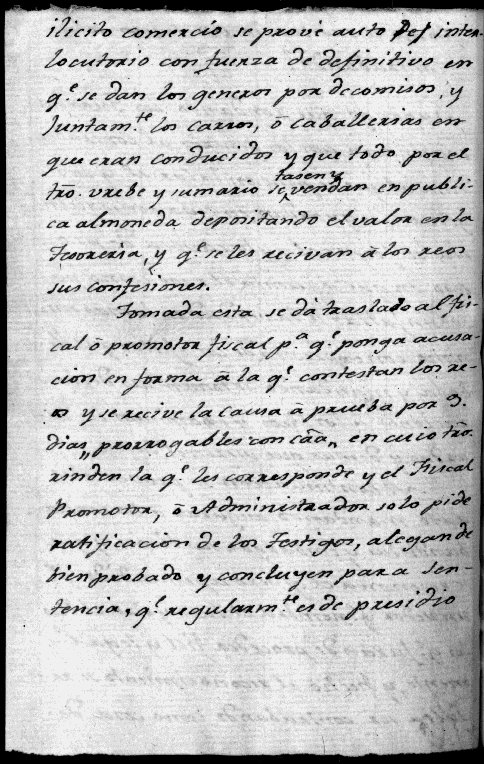 ilicito comercio se prove auto inter-
locutorio con fuerza de definitivo en
q.e se dan los generos por decomisos, y
Juntam.te los carros, ó caballerias en
que eran conducidos y que todo por el
tro. vrebe y sumario se tasen y vendan en publi-
ca almoneda depositando el valor en la
Tesoreria, y q.e se les recivan á los reos
sus confesiones.
Tomada esta se dá traslado al fis-
cal ó promotor fiscal p.a q.e ponga acusa-
cion en forma á la q.e contestan los re-
os y se recive la causa á prueba por 9.
dias, prorrogables con caā, en cuio tro.
rinden la q.e les corresponde y el Fiscal
Promotor, ó Administrador solo pide
ratificacion de los Testigos, alegan de
bien probado y concluyen para sen-
tencia, q.e regularm.te es de presidio